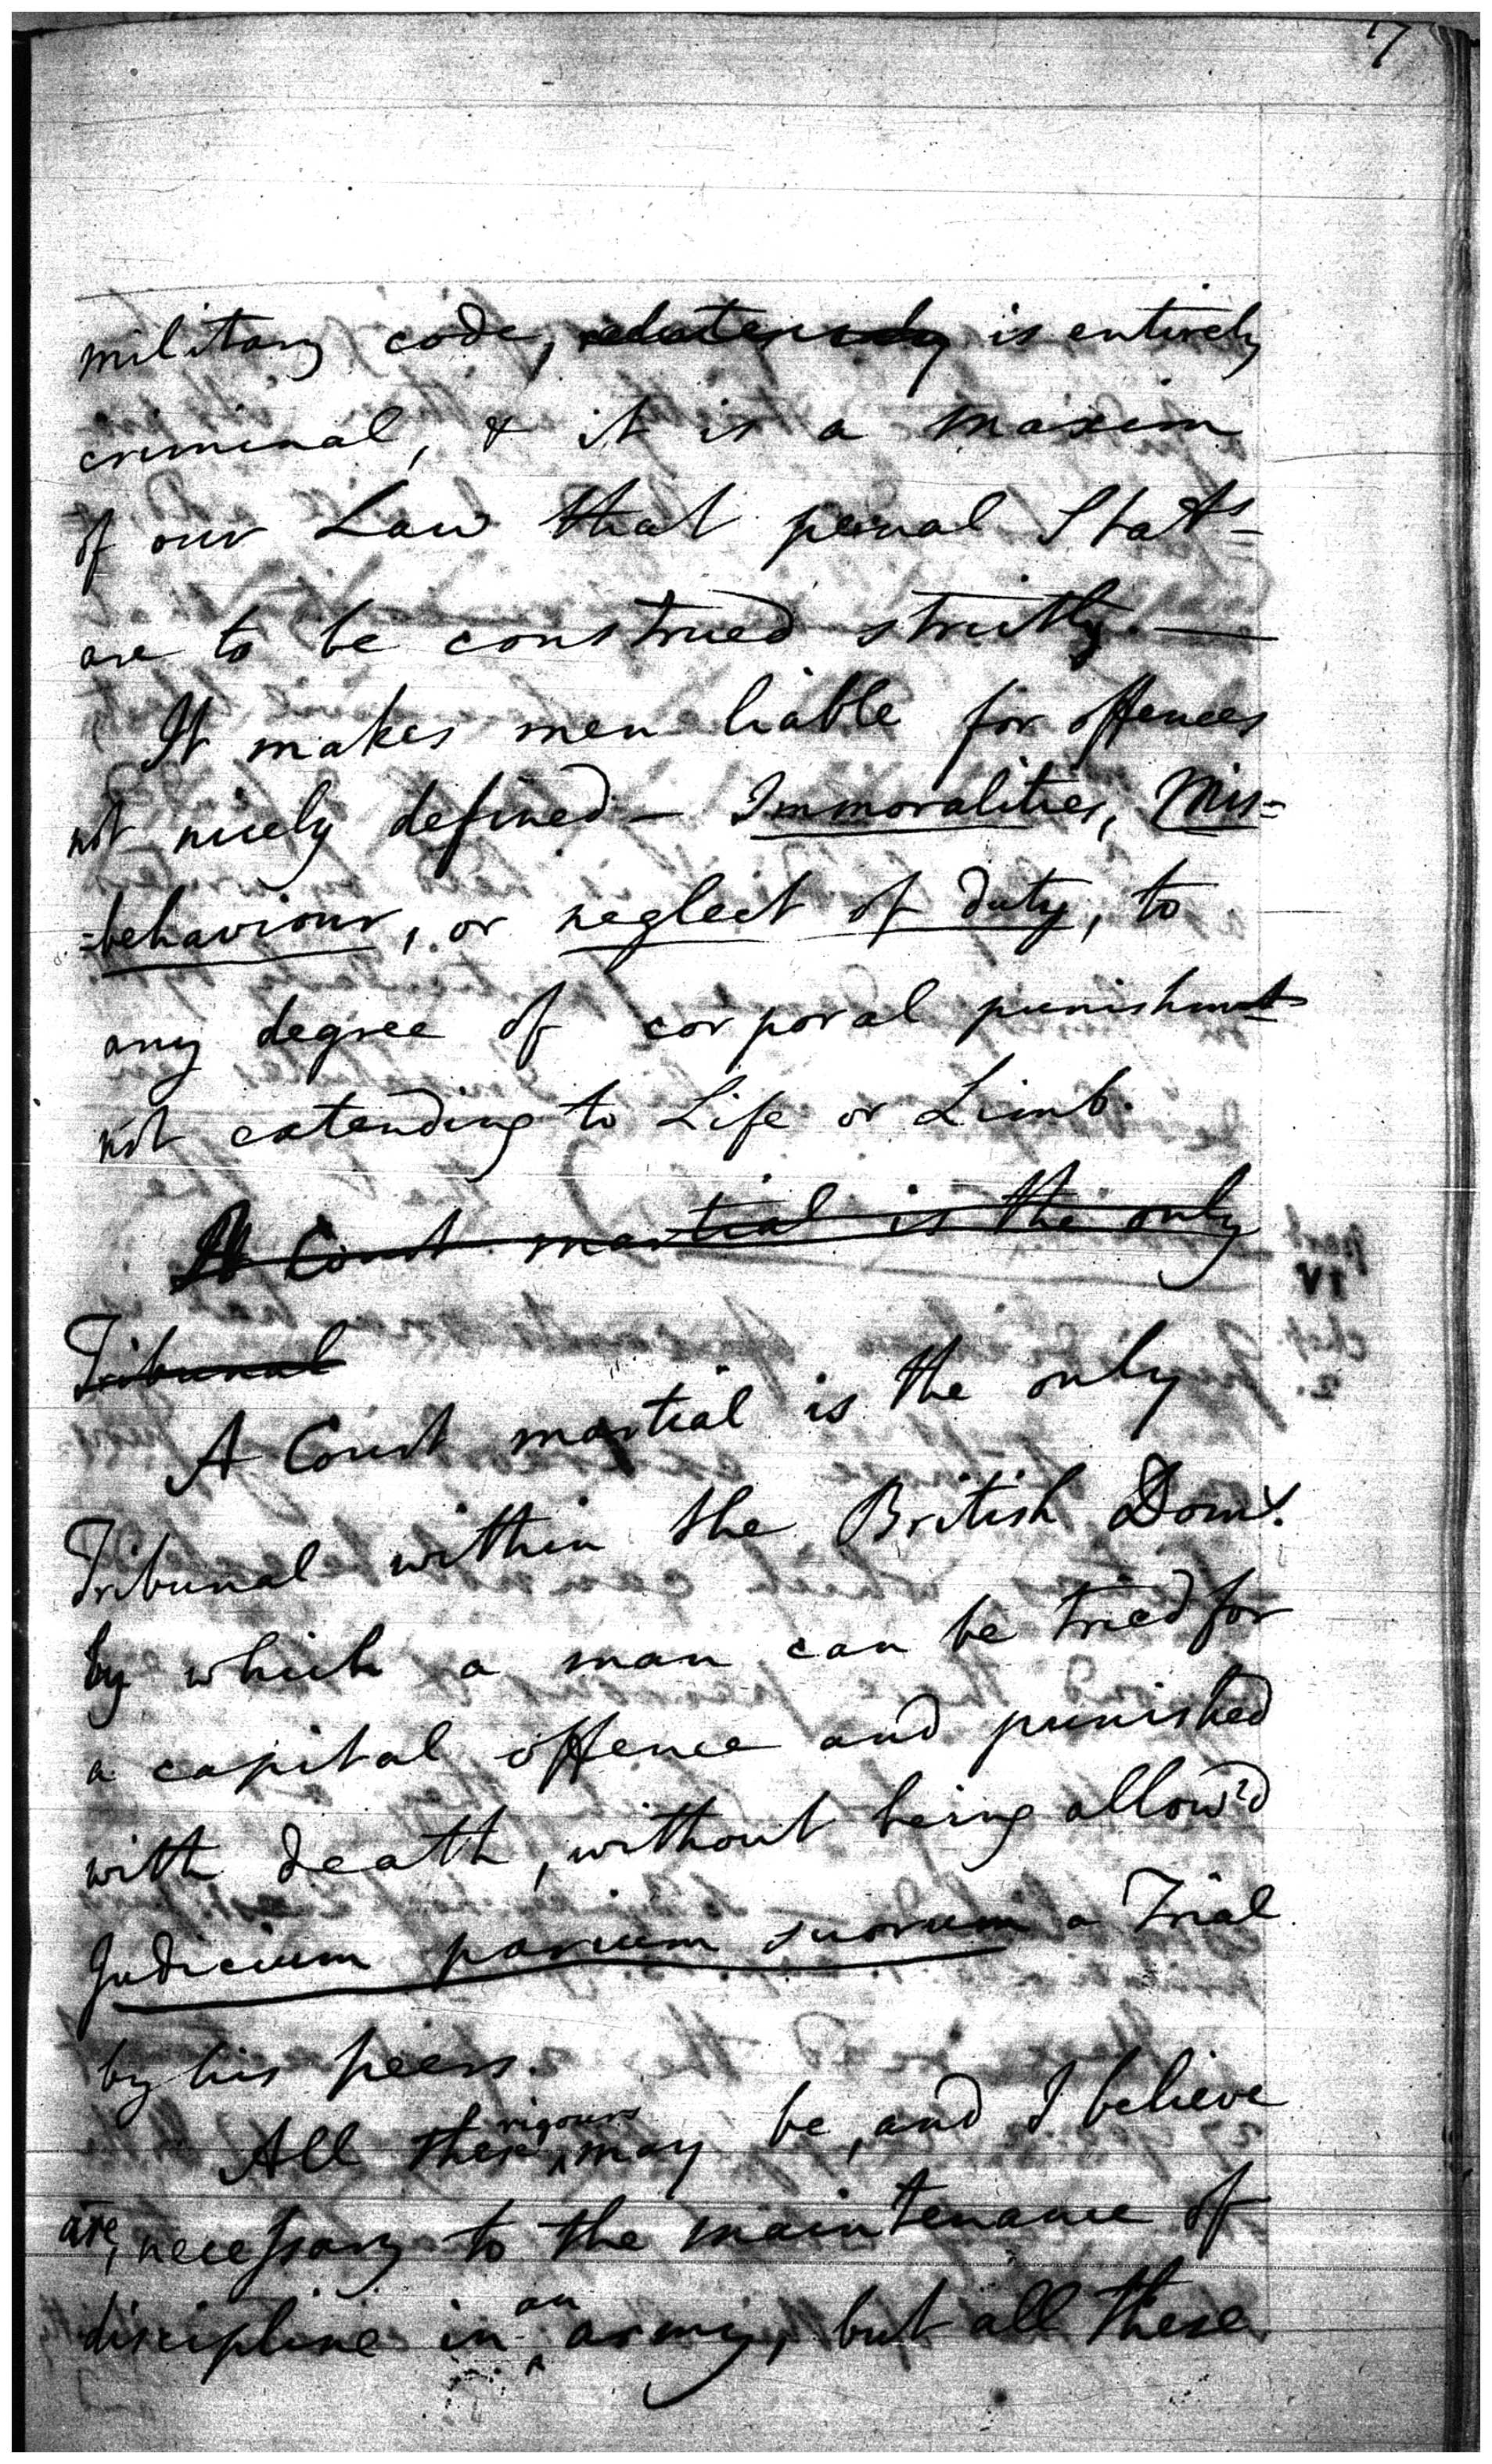 7
military code, is entirely
criminal, & it is a maxim
of our Law that penal Stats
are to be construed strictly. —
It makes men liable for offences
not nicely defined — Immoralities, Mis=
=behaviour, or neglect of duty, to
any degree of corporal punishmt
not extending to Life or Limb.
A Court martial is the only
Tribunal
A Court martial is the only
Tribunal within the British Doms.
by which a man can be tried for
a capital offence and punished
with death, without being allow'd
Judicium parium suorum a Trial
by his peers.
All these rigours may be, and I believe
are, necessary to the maintenance of
discipline in an army, but all these